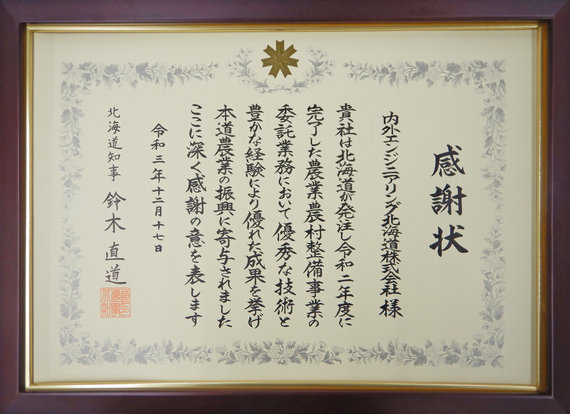 感謝状
内外エンジニアリング北海道株式会社 様
貴社は北海道が発注し令和二年度に
完了した農業農村整備事業の
委託業務において優秀な技術と
豊かな経験により優れた成果を挙げ
本道農業の振興に寄与されました
ここに深く感謝の意を表します
令和三年十二月十七日
北海道知事 鈴木直道